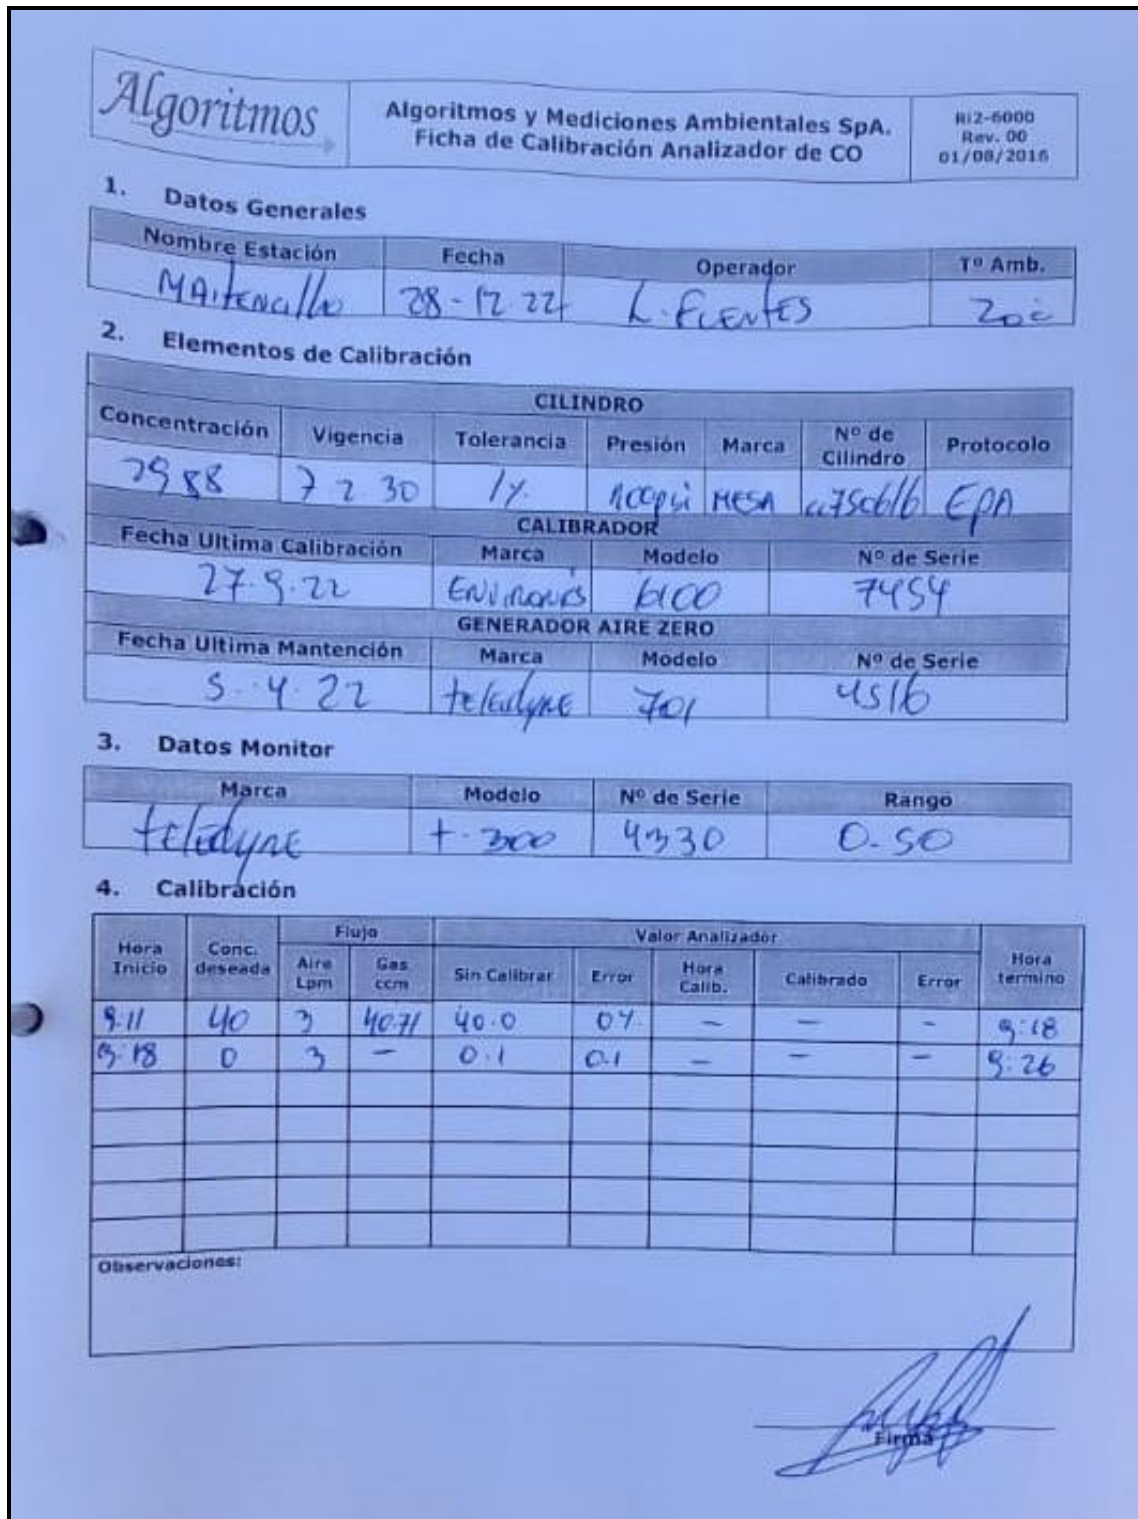 Algoritmos
Algoritmos y Mediciones Ambientales SpA.
Ficha de Calibración Analizador de CO
RI2-6000
Rev. 00
01/08/2016
1. Datos Generales
Nombre Estación Fecha Operador Tº Amb.
MAITENCILLO 28-12 22 L. FUENTES
2. Elementos de Calibración
CILINDRO
Concentración Vigencia Tolerancia Presión Marca Nº de Cilindro Protocolo
2988 7 2 30 1% MESA EPA
CALIBRADOR
Fecha Ultima Calibración Marca Modelo Nº de Serie
27.9.22 ENVIRONICS 6100 7454
GENERADOR AIRE ZERO
Fecha Ultima Mantención Marca Modelo Nº de Serie
5. 4. 22 teledyne 701 4516
3. Datos Monitor
Marca Modelo Nº de Serie Rango
teledyne t.300 4330 0-50
4. Calibración
Flujo Valor Analizador
Hora Inicio Conc. deseada Aire Lpm Gas ccm Sin Calibrar Error Hora Calib. Calibrado Error Hora termino
9:11 40 3 40.71 40.0 0% – – – 9:18
9:18 0 3 – 0.1 0.1 – – – 9:26
Observaciones:
Firma